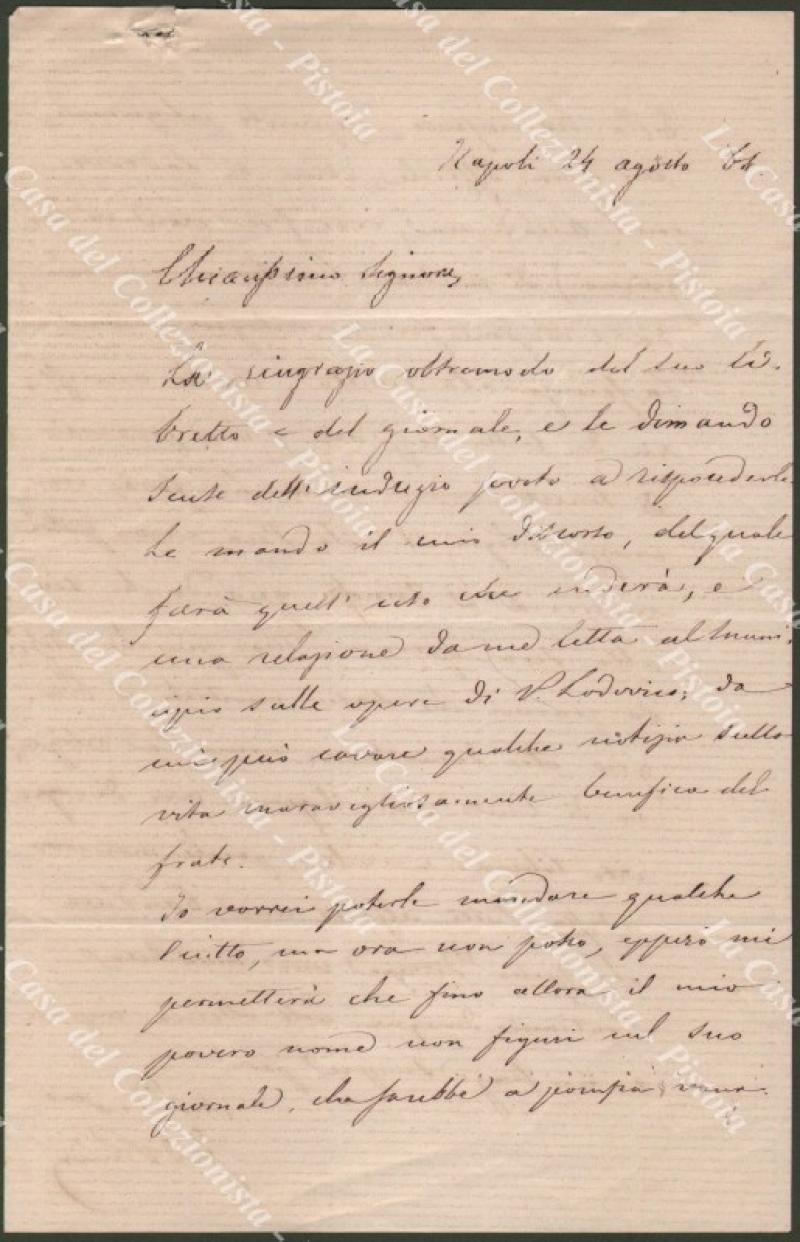 Napoli 24 agosto
Chiarissimo Signore,
La ringrazio oltremodo del suo li-
bretto e del giornale, e le dimando
scusa dell'indugio posto a risponderle.
Le mando il mio discorso, del quale
farà quell'uso che crederà, e
una relazione da me letta al muni-
cipio sulle opere di P. Lodovico; da
cui può cavare qualche notizia sulla
vita maravigliosamente benefica del
frate.
Io vorrei poterle mandare qualche
scritto, ma ora non posso, epperò mi
permetterà che fino allora il mio
povero nome non figuri sul suo
giornale, che sarebbe a pompa vana.
La Casa del Collezionista - Pistoia